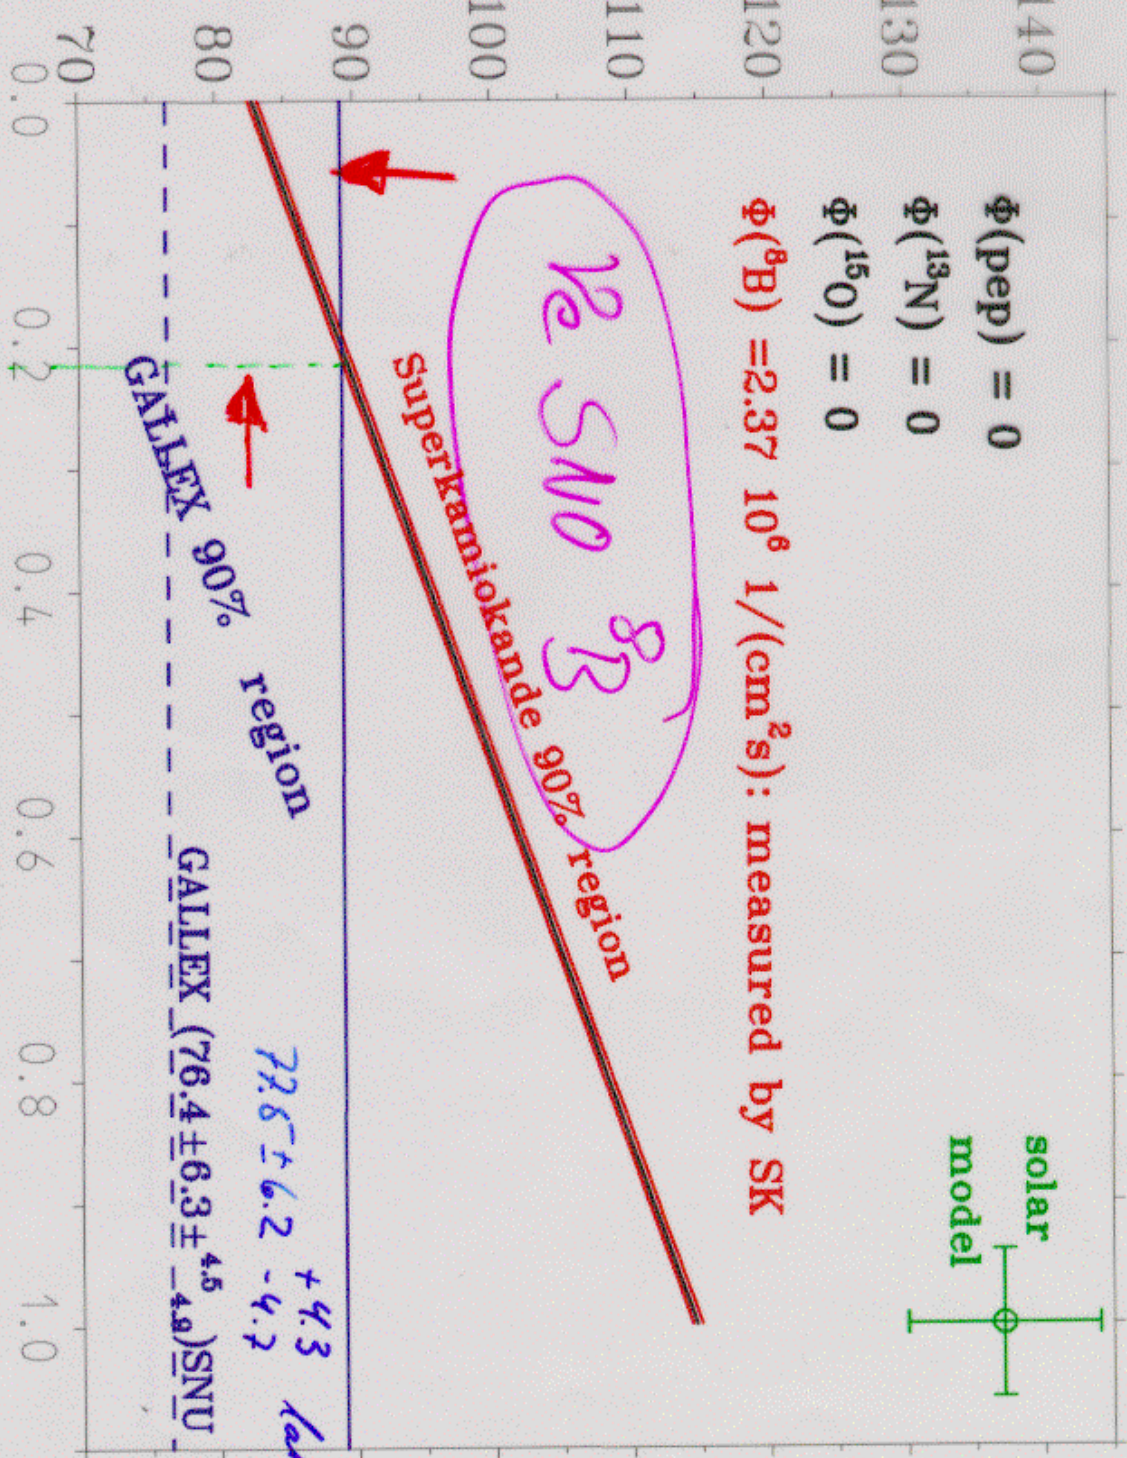 140
130
120
110
100
90
80
70
0.0
0.2
0.4
0.6
0.8
1.0
Φ(pep) = 0
Φ(¹³N) = 0
Φ(¹⁵O) = 0
Φ(⁸B) =2.37 10⁶ 1/(cm²s): measured by SK
solar
model
νe SNO ⁸B
Superkamiokande 90% region
GALLEX 90% region
77.5±6.2 +4.3 -4.7
GALLEX (76.4±6.3± 4.5 -4.9)SNU